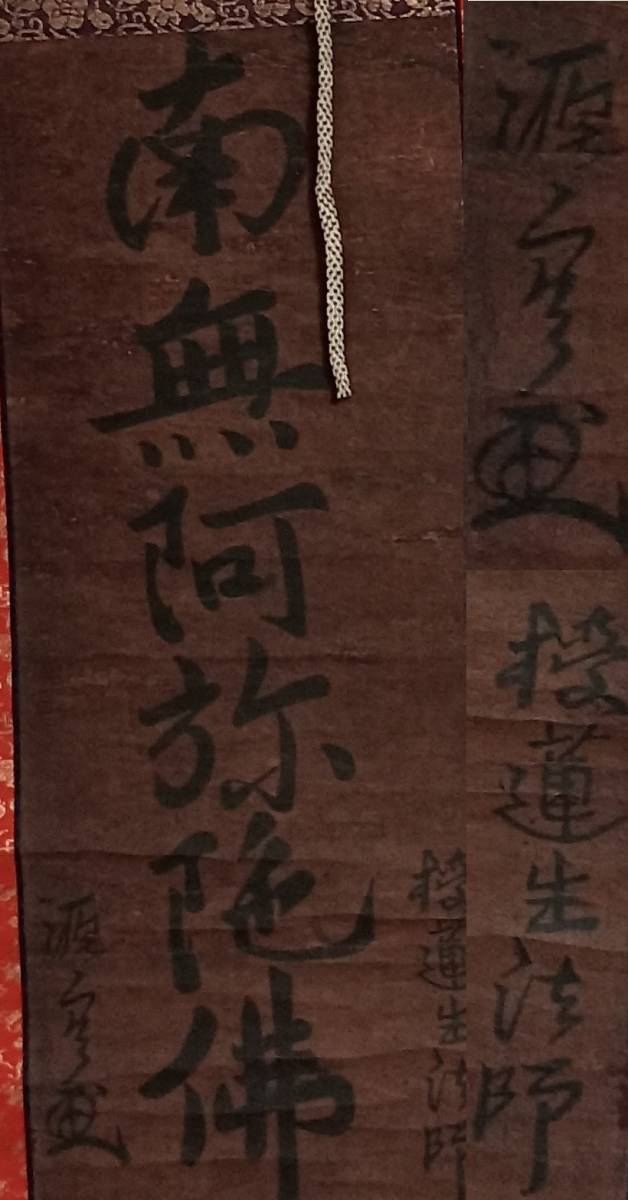 源空
授蓮生法師
授蓮生法師
南無阿弥陀佛
源空